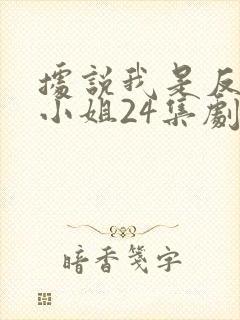 據說我是反
小姐24集劇
暗香箋字